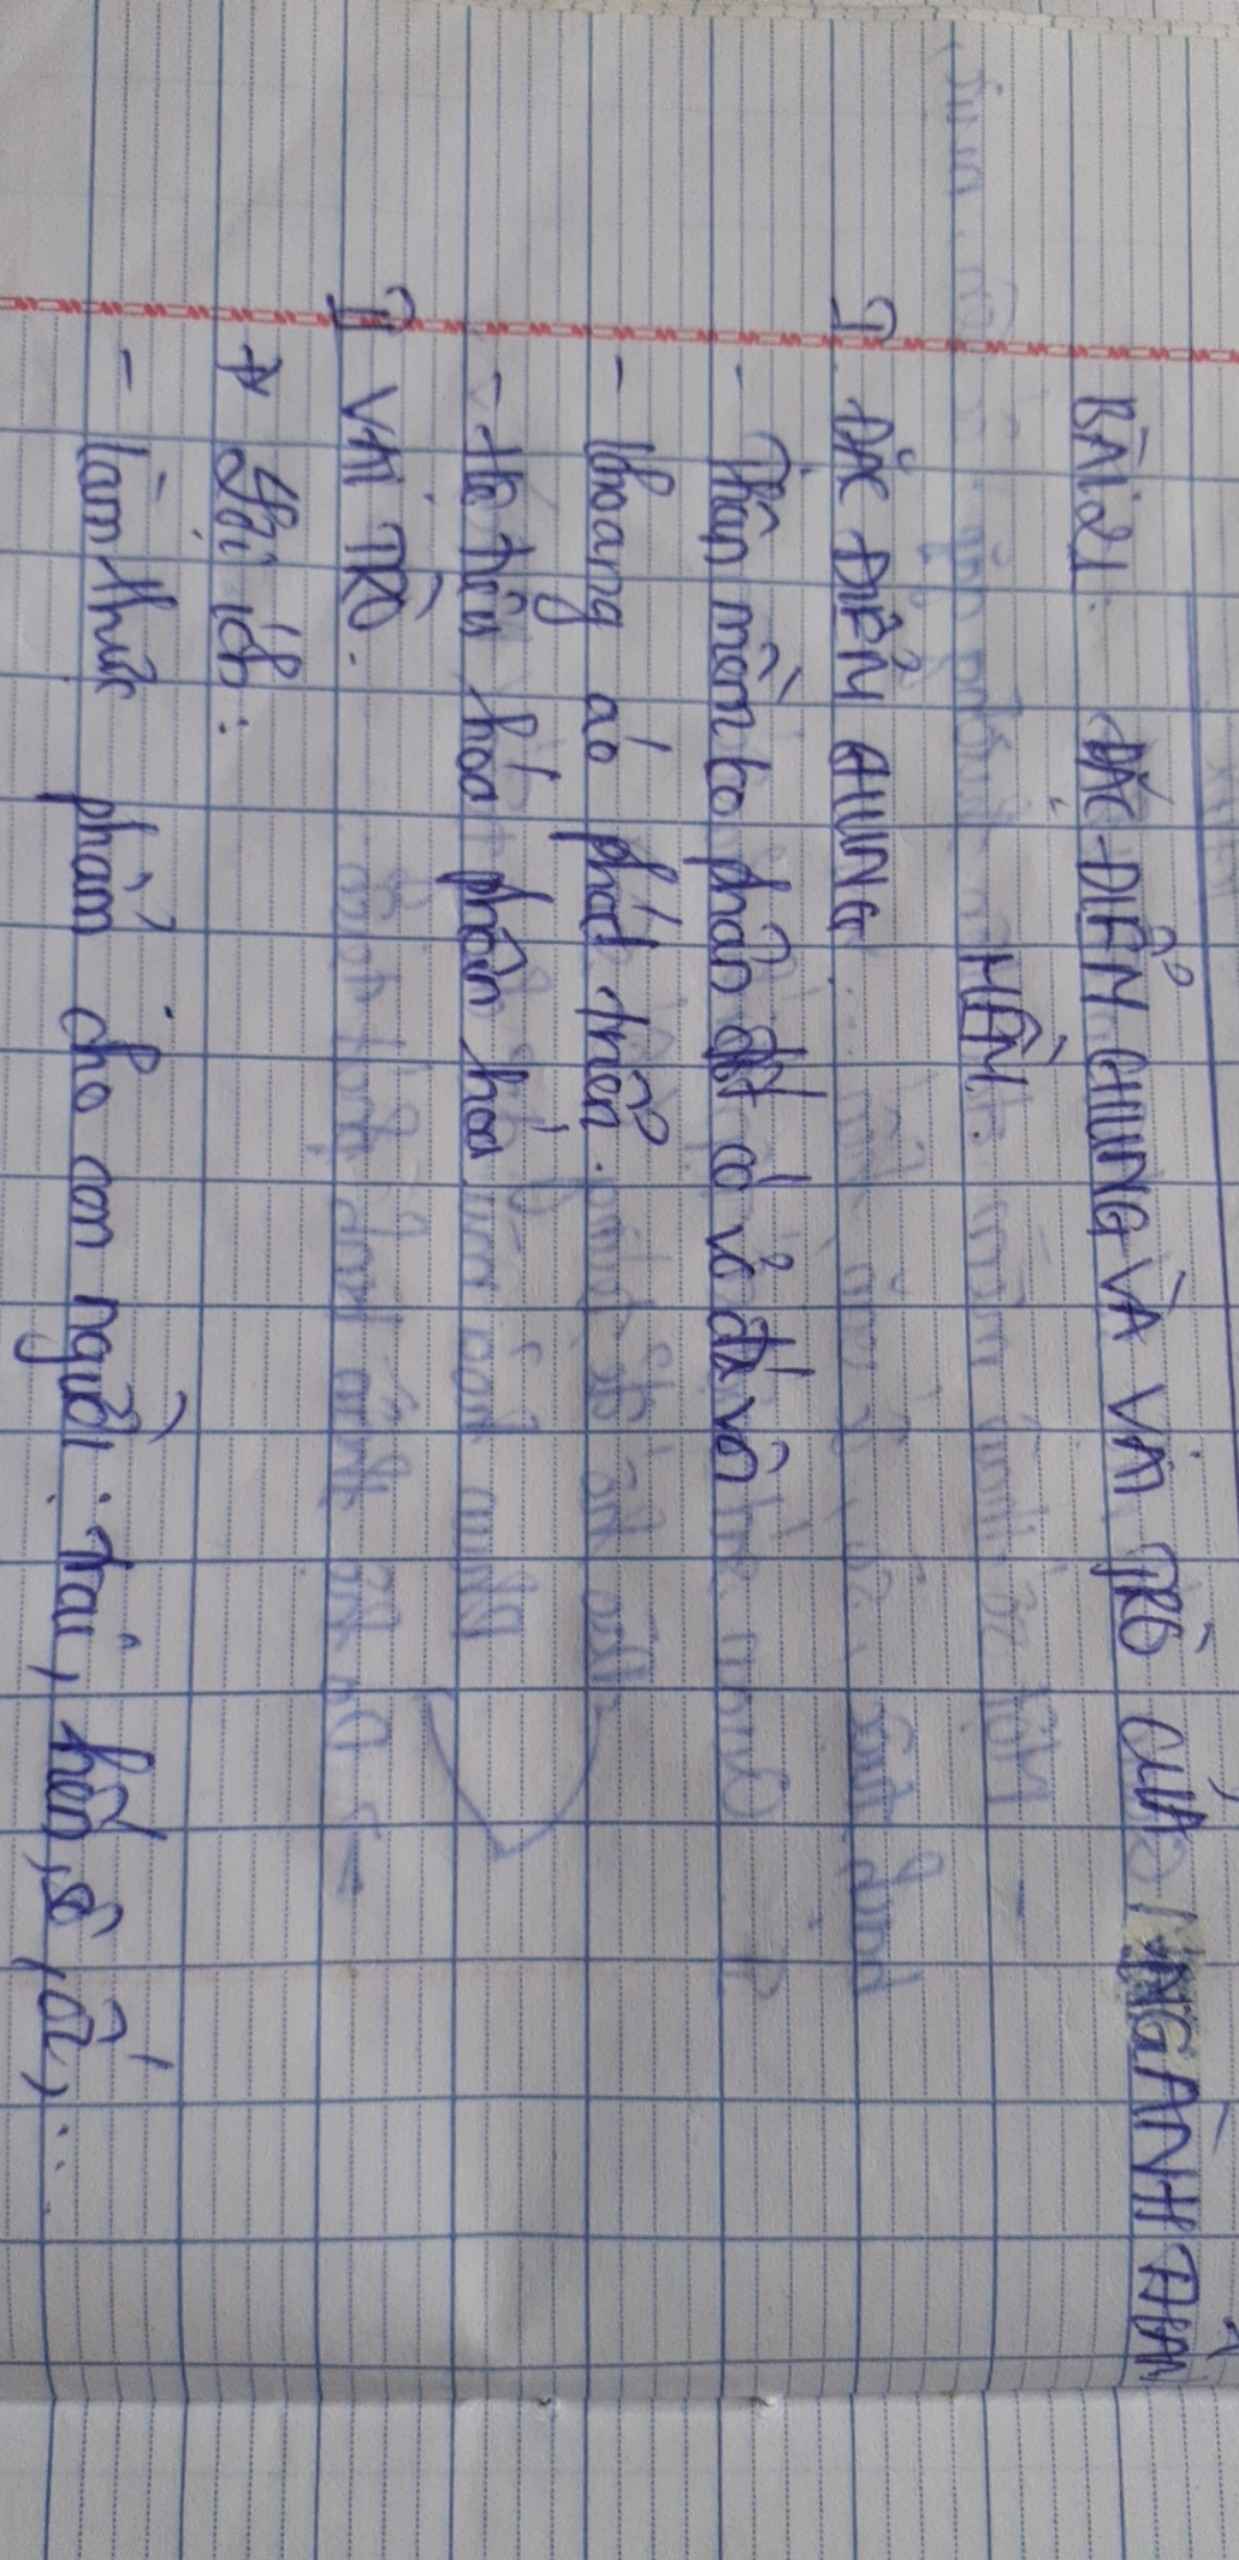 BÀI 21. ĐẶC ĐIỂM CHUNG VÀ VAI TRÒ CỦA NGÀNH THÂN
MỀM.
I. ĐẶC ĐIỂM CHUNG
- Thân mềm ko phân đốt có vỏ đá vôi
- khoang áo phát triển.
- Hệ tiêu hóa phân hóa
II VAI TRÒ.
* Lợi ích:
- làm thực phẩm cho con người: trai, hến, sò, ốc,...